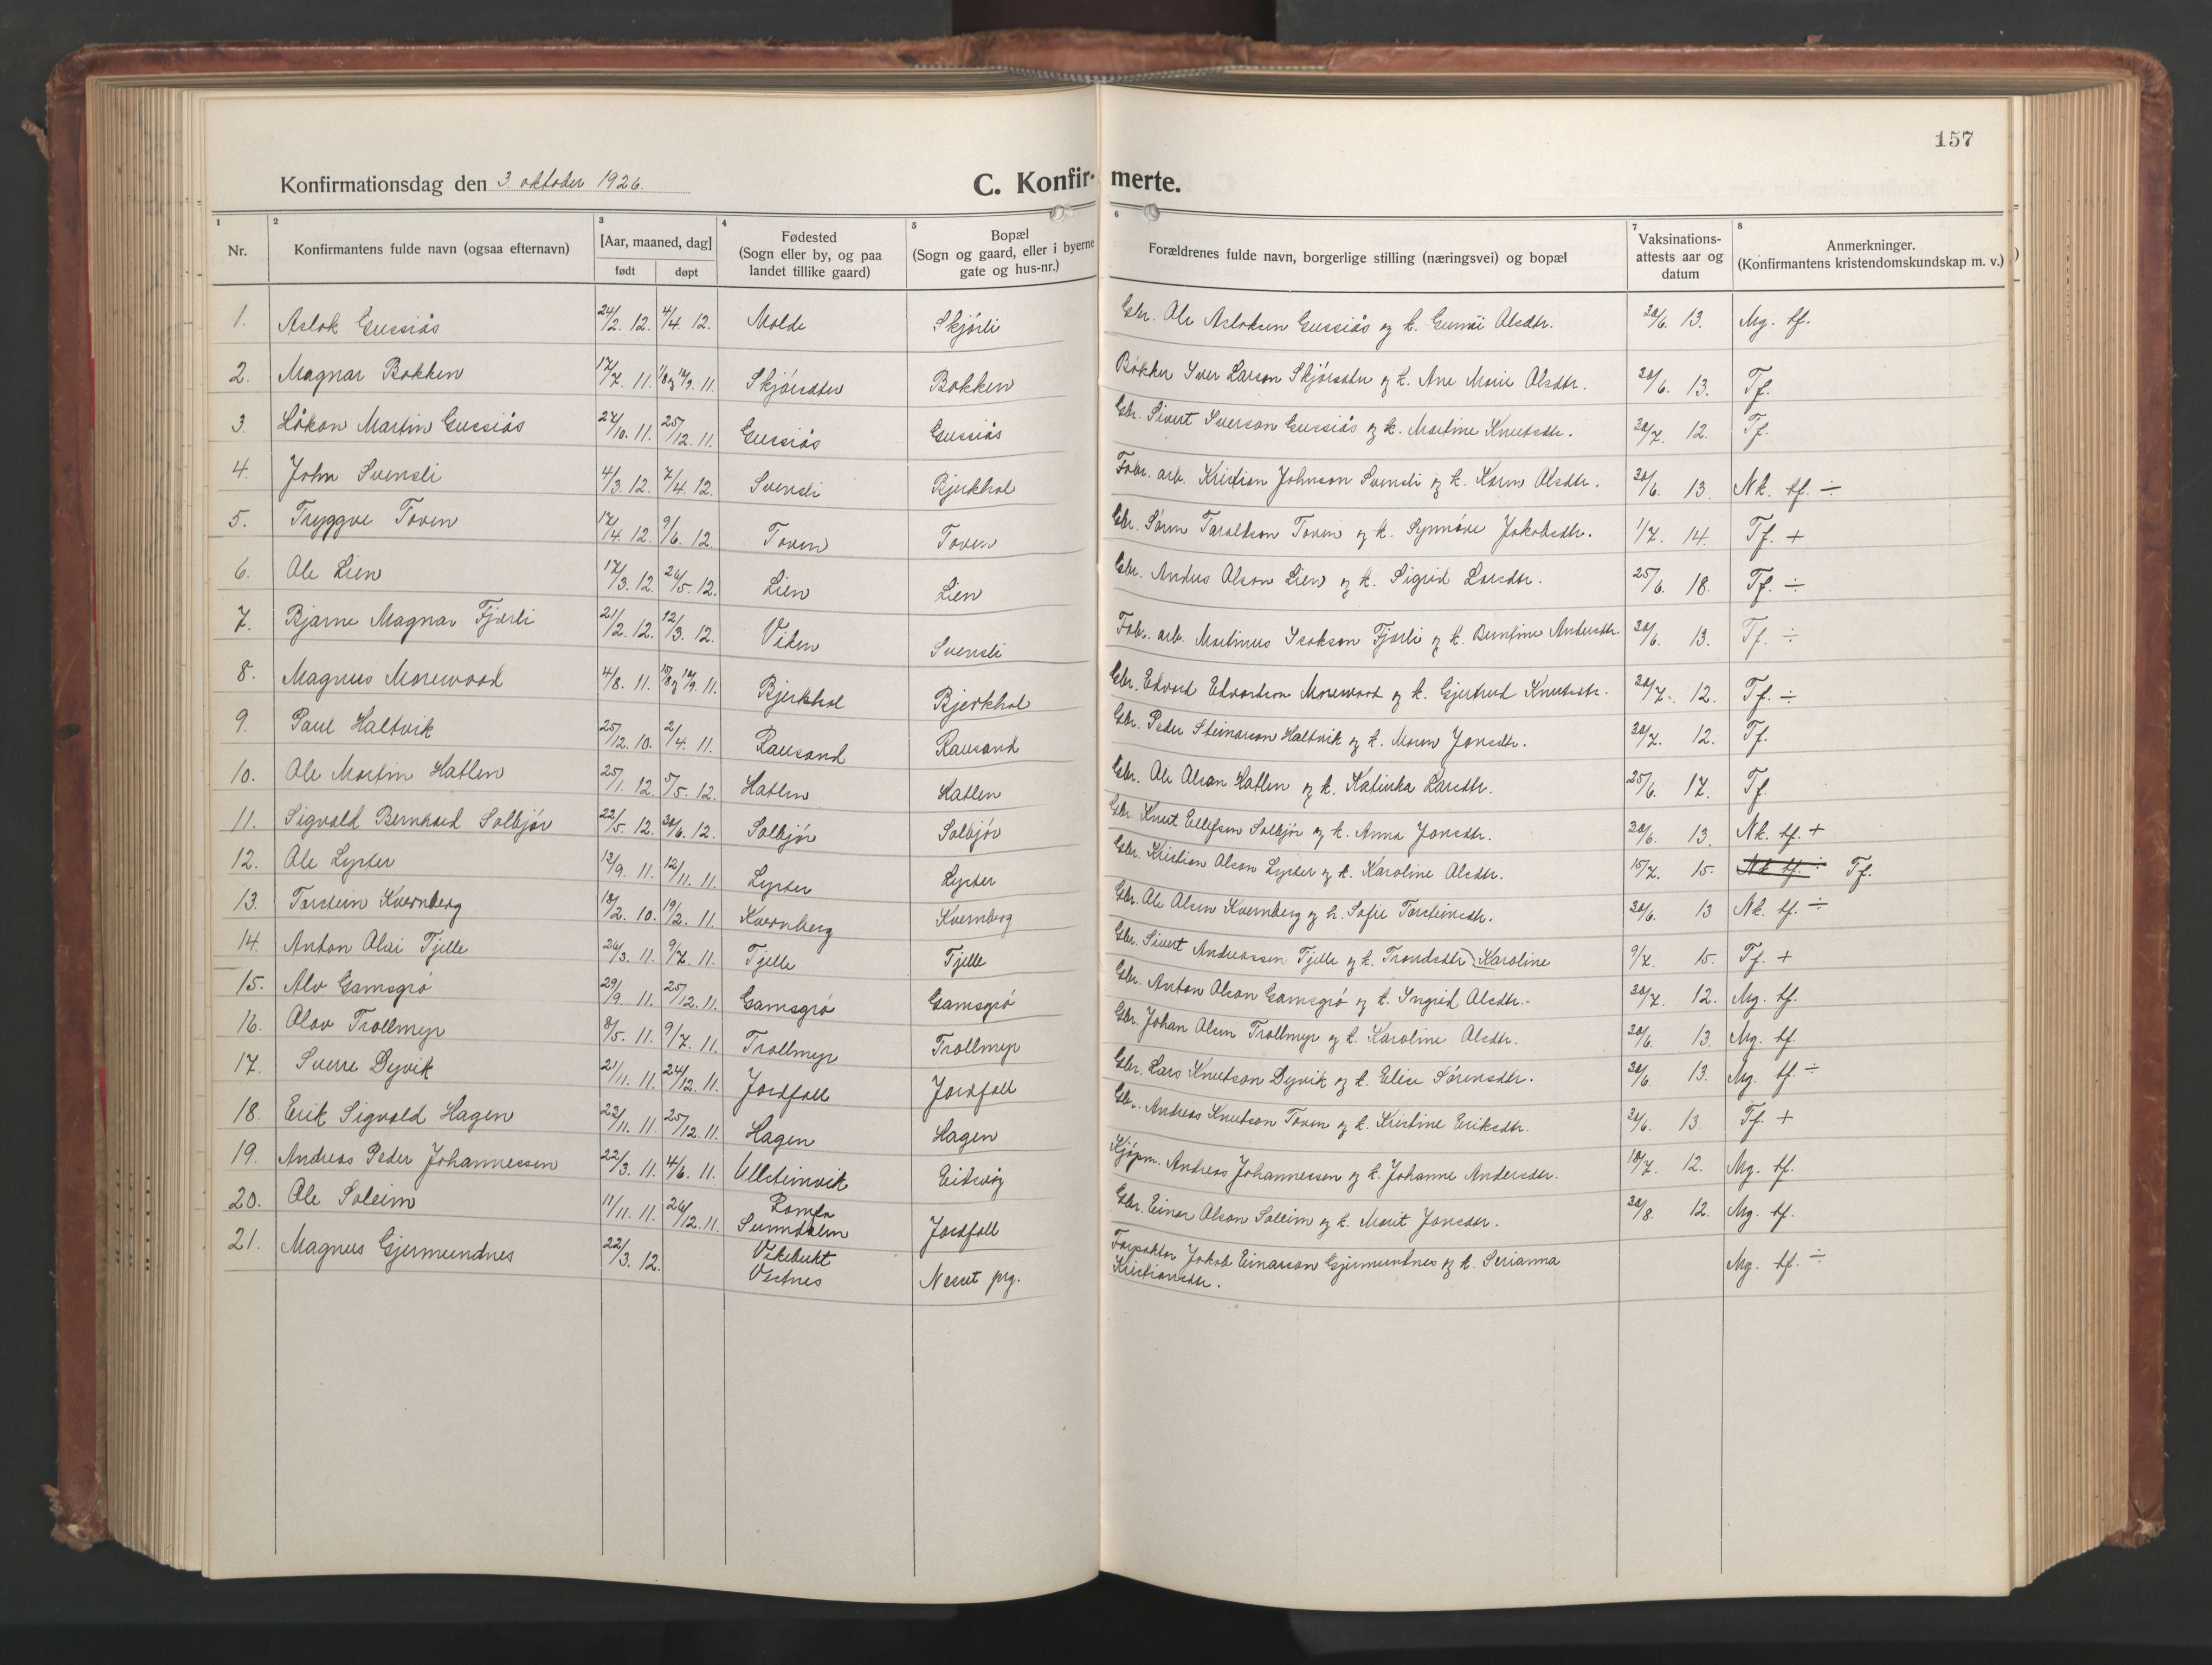 157
Konfirmationsdag den 3. oktober 1926.
C. Konfir- merte.
1 2 3 4 5 6 7 8
Nr. Konfirmantens fulde navn (ogsaa efternavn) [Aar, maaned, dag] født døpt Fødested (Sogn eller by, og paa landet tillike gaard) Bopæl (Sogn og gaard, eller i byerne gate og hus-nr.) Forældrenes fulde navn, borgerlige stilling (næringsvei) og bopæl Vaksinations-attests aar og datum Anmerkninger. (Konfirmantens kristendomskundskap m. v.)
1. Aslak Gussiås 24/2. 12. 4/4. 12. Molde Skjórli Gbr. Ole Aslaksen Gussiås og k. Olsdtr. 20/6. 13. Mg. tf.
2. Magnar Bakken 17/7. 11. Skjórsæter Bakken Bókker Iver Larson Skjórsæter og k. Ane Marie Olsdtr. 20/6. 13. Tf.
3. Håkon Martin Gussiås 27/10. 11. 25/12. 11. Gussiås Gussiås Gbr. Sivert Iverson Gussiås og k. Martine Knutsdtr. 20/7. 12. Tf.
4. John Svensli 4/3. 12. 7/4. 12. Svensli Bjerkhol Fabr. arb. Kristian Johnson Svensli og k. Karen Olsdtr. 20/6. 13. Nk. tf. ÷
5. Tryggve Toven 17/4. 12. 9/6. 12. Toven Toven Gbr. Sóren Taraldson Toven og k. Synnóve Jakobsdtr. 1/7. 14. Tf. +
6. Ole Lien 17/3. 12. 26/5. 12. Lien Lien Gbr. Anders Olson Lien og k. Sigrid Larsdtr. 25/6. 18. Tf. ÷
7. Bjarne Magnar Fjærli 21/2. 12. 12/3. 12. Viken Svensli Fabr. arb. Martinus Isakson Fjærli og k. Berntine Andersdtr. 20/6. 13. Tf. ÷
8. Magnus Morewood 4/8. 11. Bjerkhol Bjerkhol Gbr. Edvard Edvardson Morewood og k. Gjertrud Knutsdtr. 20/7. 12. Tf. ÷
9. Paul Haltvik 25/12. 10. 2/4. 11. Rausand Rausand Gbr. Peder Steinarson Haltvik og k. Maren Jonsdtr. 20/7. 12. Tf.
10. Ole Martin Hatlen 25/1. 12. 5/5. 12. Hatlen Hatlen Gbr. Ole Olson Hatlen og k. Katinka Larsdtr. 25/6. 17. Tf.
11. Sigvald Bernhard Solbjór 22/5. 12. 30/6. 12. Solbjór Solbjór Gbr. Knut Ellefsen Solbjór og k. Anna Jonsdtr. 20/6. 13. Nk. tf. +
12. Ole Lyster 13/9. 11. 12/11. 11. Lyster Lyster Gbr. Kristian Olson Lyster og k. Karoline Olsdtr. 15/7. 15. Nk tf. ÷ Tf.
13. Torstein Kvernberg 18/2. 10. 19/2. 11. Kvernberg Kvernberg Gbr. Ole Olsen Kvernberg og h. Sofie Torsteinsdtr. 20/6. 13 Nk. tf. ÷
14. Anton Olai Tjelle 26/3. 11. 9/7. 11. Tjelle Tjelle Gbr. Sivert Andreassen Tjelle og k. Trondsdtr. Karoline 9/7. 15. Tf. +
15. Alv Gamsgró 29/9. 11. 25/12. 11. Gamsgró Gamsgró Gbr. Anton Olson Gamsgró og k. Ingrid Olsdtr. 20/7. 12. Mg. tf.
16. Olav Trollmyr 8/5. 11. 9/7. 11. Trollmyr Trollmyr Gbr. Johan Olsen Trollmyr og k. Karoline Olsdtr. 20/6. 13. Mg. tf.
17. Sverre Dyvik 21/11. 11. 24/12. 11. Jordfall Jordfall Gbr. Lars Knutson Dyvik og k. Elise Sórensdtr. 20/6. 13. Mg. tf ÷
18. Erik Sigvald Hagen 23/11. 11. 25/12. 11. Hagen Hagen Gbr. Andreas Knutson Toven og k. Kristine Eriksdtr. 20/6. 13 Tf. +
19. Andreas Peder Johannessen 22/3. 11. 4/6. 11. Ulsteinvik Eidsvåg Kjópm. Andreas Johannessen og k. Johanne Andersdtr. 18/7. 12. Mg. tf.
20. Ole Soleim 11/11. 11. 26/12. 11. Romfo Sunndalen Jordfall Gbr. Einar Olson Soleim og k. Marit Jonsdtr. 20/8. 12. Mg. tf.
21. Magnus Gjermundnes 22/3. 12. Vikebukt Vestnes Nesset prg. Forpakter Jakob Einarson Gjermundnes og k. Serianna Kristiansdtr. Mg. tf. ÷